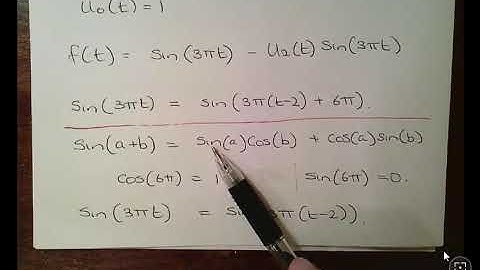 u₀(t) = 1
f(t) = sin(3πt) - u₂(t) sin(3πt)
sin(3πt) = sin(3π(t-2) + 6π).
sin(a+b) = sin(a)cos(b) + cos(a)sin(b)
cos(6π) = 1 sin(6π) = 0.
sin(3πt) = sin(3π(t-2)).